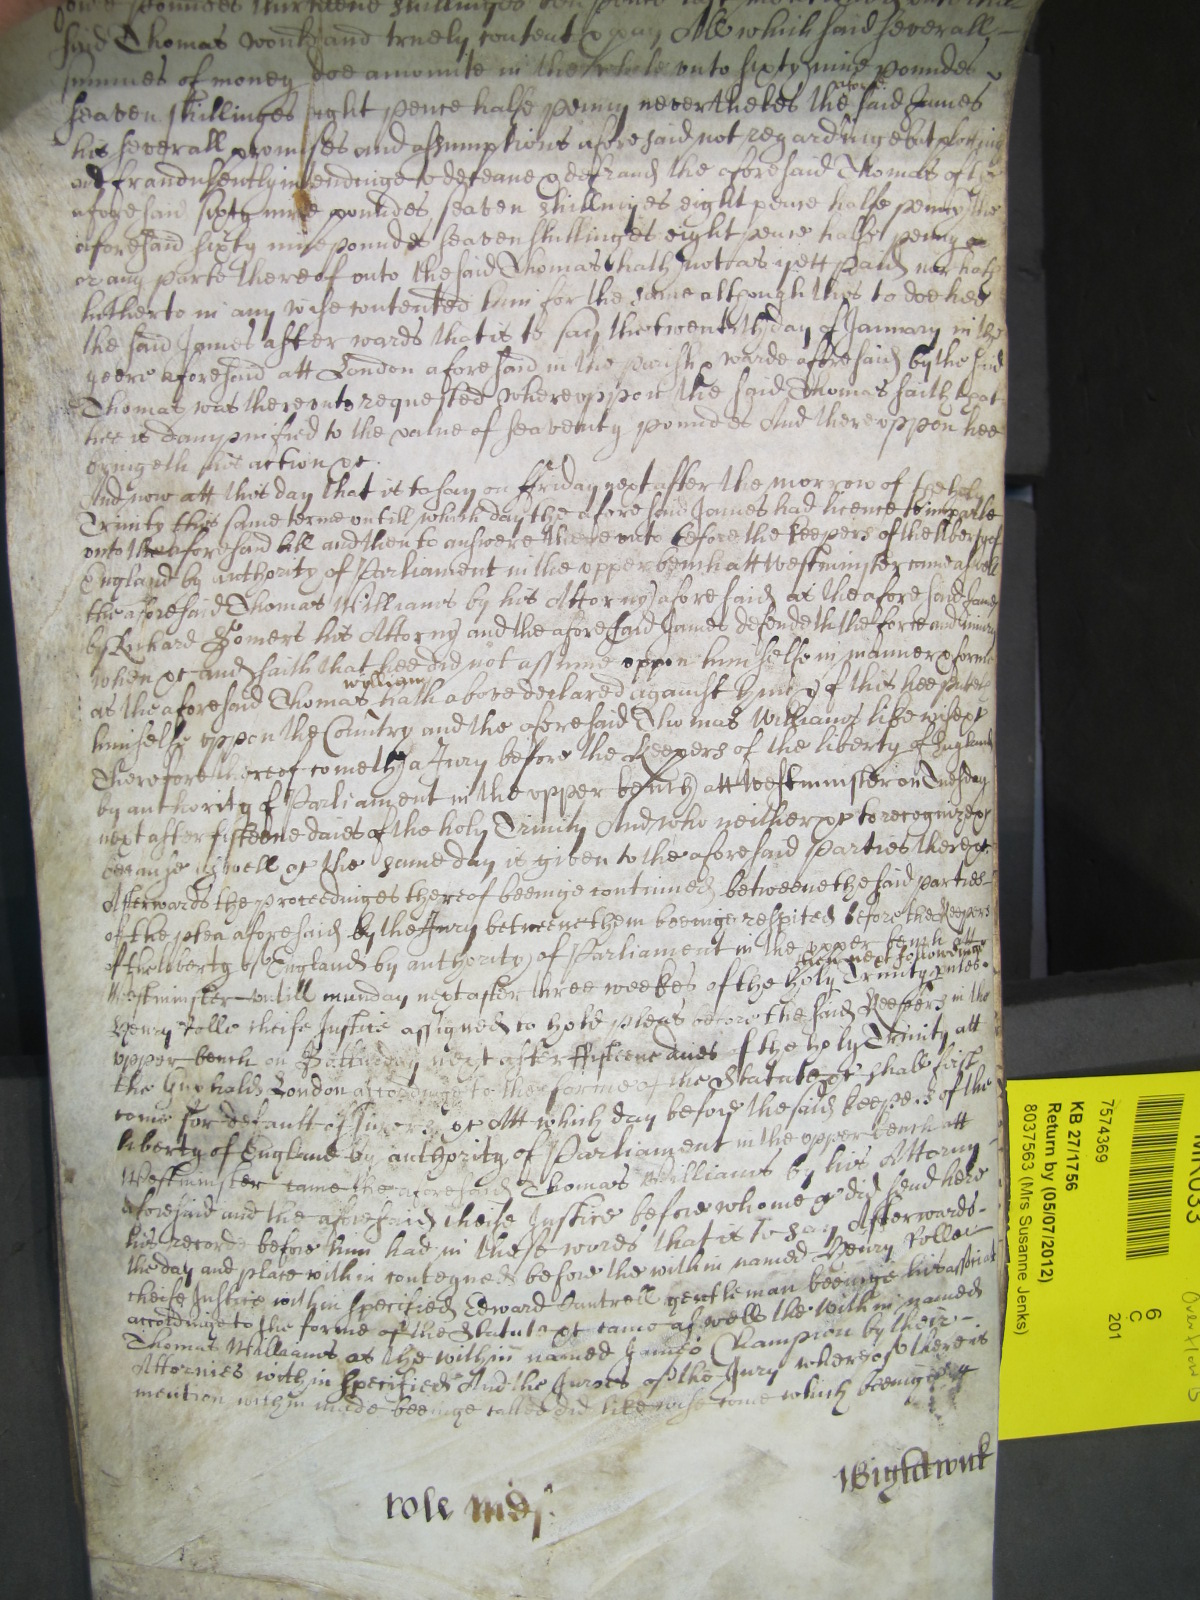 said Thomas would and truely content & pay All which said severall
summes of money doe amounte in the whole unto sixty nine poundes
seaven shillinges eight pence halfe penny neverthelesse the afore said James
his severall promises and assumptions aforesaid not regardinge but
and fraudulently intendinge to deceave & defraud the aforesaid Thomas of the
aforesaid sixty nine poundes seaven shillinges eight pence halfe penny the
aforesaid sixty nine poundes seaven shillinges eight pence halfe penny
or any parte thereof unto the said Thomas hath not as yett paid nor hath
hitherto in any wise contented him for the same although this to doe hee
the said James afterwards that is to say the twentith day of January in the
yeere aforesaid att London aforesaid in the parish & warde aforesaid by the said
Thomas was thereunto requested whereuppon the said Thomas saith that
hee is dampnified to the value of seaventy poundes And thereuppon hee
bringeth his action &c.
And now att this day that is to say on Friday next after the morrow of the holy
Trinity this same terme untill which day the aforesaid James had licence to imparle
unto the aforesaid bill and then to answere thereunto before the keepers of the liberty of
England by authority of Parliament in the upper bench att Westminster come aswell
the aforesaid Thomas Williams by his Attorny aforesaid as the aforesaid James
by Richard Somers his Attorny and the aforesaid James defendeth the force and injury
when &c and saith that hee did not assume uppon himselfe in manner & forme
as the aforesaid Thomas Williams hath above declared against him & of this hee putteth
himselfe uppon the Country and the aforesaid Thomas Williams likewise &c
Therefore thereof cometh a Jury before the Keepers of the liberty of England
by authority of Parliament in the upper bench att Westminster on Tuesday
next after fifteene daies of the holy Trinity And who neither &c to recognize &c
because aswell &c the same day is given to the aforesaid parties there &c
Afterwards the proceedinges thereof beeinge continued betweene the said parties
of the plea aforesaid by the Jury betweene them beeinge respited before the Keepers
of the liberty of England by authority of Parliament in the upper bench att
Westminster untill munday next after three weekes of the holy Trinity then next followinge unles
Henry Rolle cheife Justice assigned to hold pleas before the said Keepers in the
upper bench on Satturday next after fifteene daies of the holy Trinity att
the Guyhald London accordinge to the forme of the Statute &c shall first
come for default of Jurors &c Att which day before the said keepers of the
liberty of England by authority of Parliament in the upper bench att
Westminster came the aforesaid Thomas Williams by his Attorny
aforesaid and the aforesaid cheife Justice before whome &c did send here
his recorde before him had in these words that is to say Afterwards
the day and place within conteyned before the within named Henry Rolle
cheife Justice within specified Edward Cantrell gentleman beeinge his associat
accordinge to the forme of the Statute &c came aswell the within named
Thomas Williams as the within named James Champion by their
Attornies within specified And the Jurors of the Jury whereof there is
mention within made beeinge called did likewise come which beeinge
Wightwick
rolle
7574369
KB 27/1756
Return by (05/07/2012)
8037563 (Mrs Susanne Jenks)
6
C
201